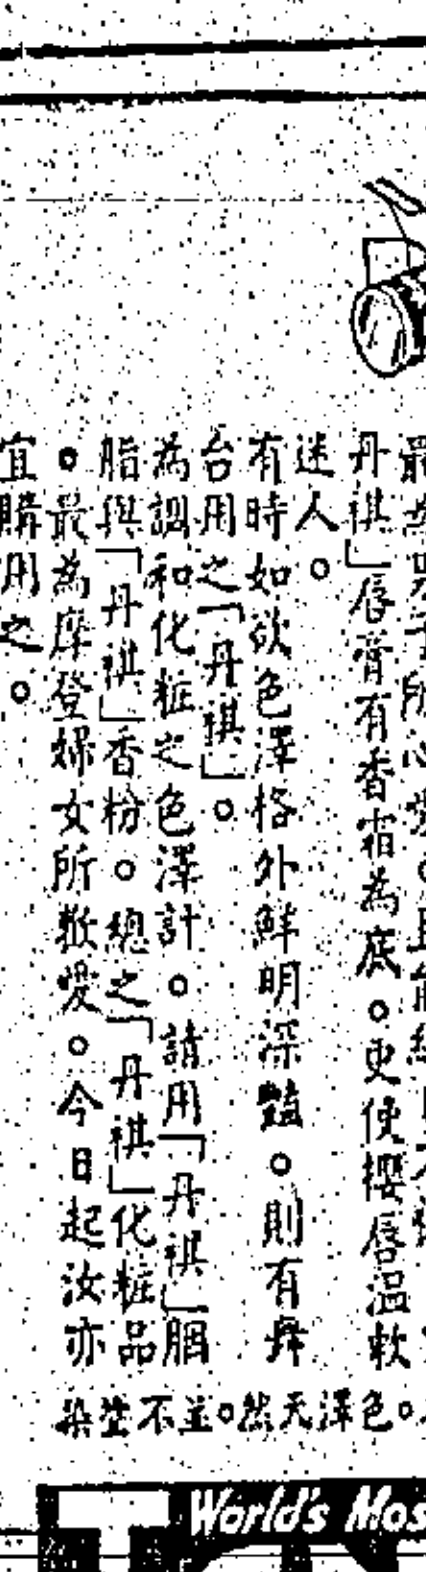 最為男子所心愛。且能經
丹祺」唇膏有香霜為底。更使櫻唇溫軟
迷人。
有時如欲色澤格外鮮明深豔。則有舞
台用之「丹祺」。
為調和化粧之色澤計。請用「丹祺」胭
脂與「丹祺」香粉。總之「丹祺」化粧品
。最為摩登婦女所歡愛。今日起汝亦
宜購用之。
。色澤天然。並不塗染
World's Mos